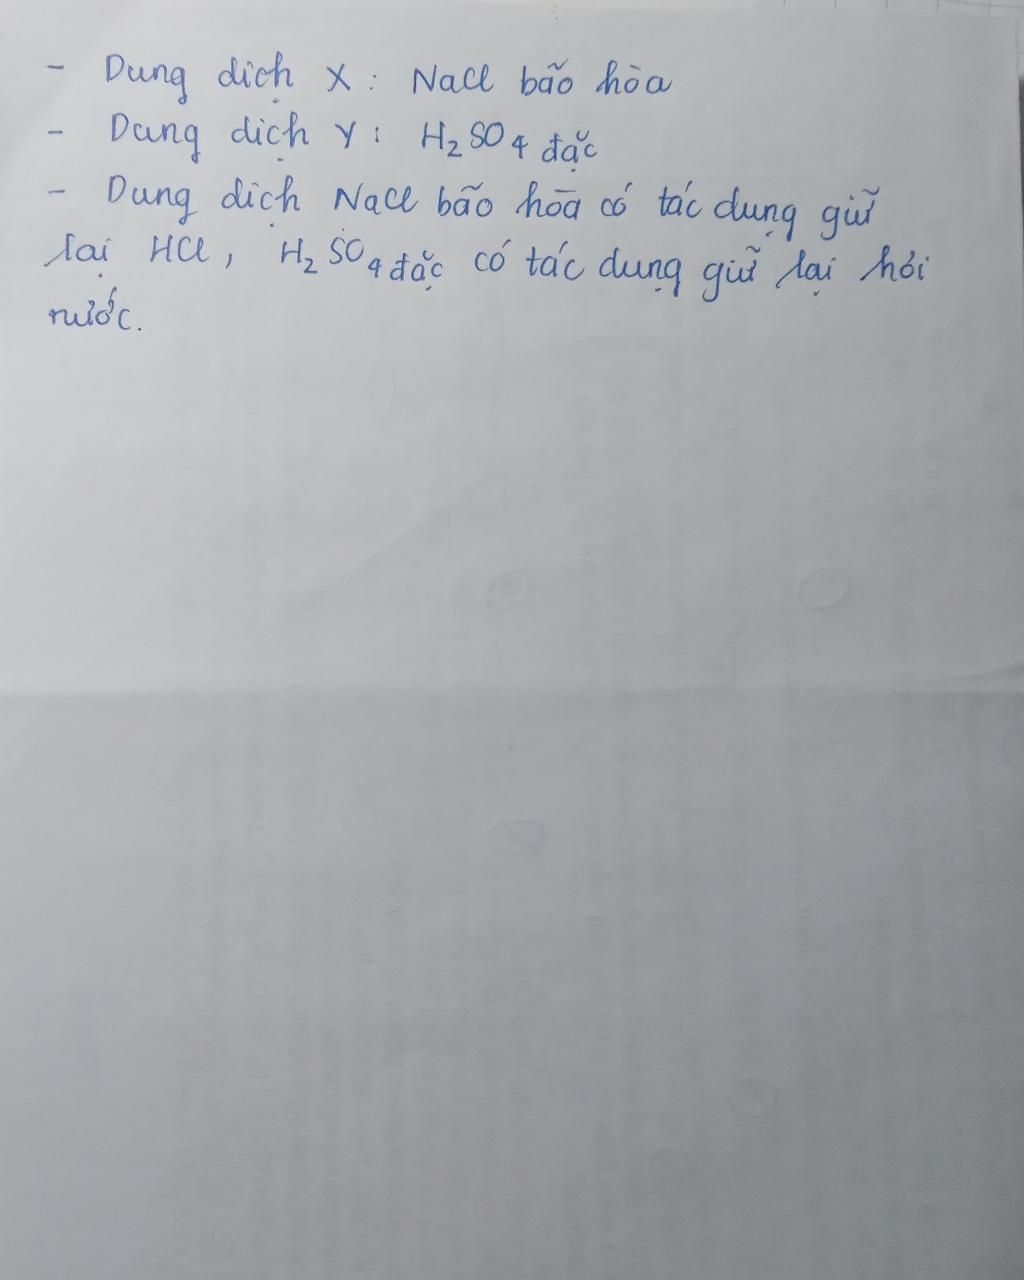 - Dung dịch X : NaCl bão hòa
- Dung dịch Y : H₂SO₄ đặc
- Dung dịch NaCl bão hòa có tác dụng giữ
lại HCl , H₂SO₄ đặc có tác dụng giữ lại hơi
nước.